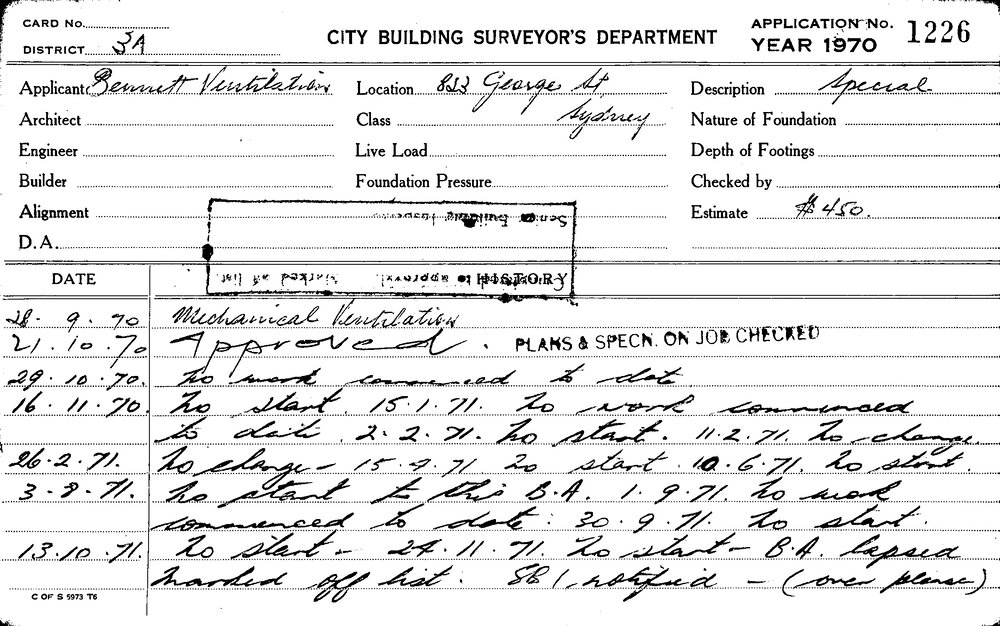 CARD No.
DISTRICT 3A
CITY BUILDING SURVEYOR'S DEPARTMENT
APPLICATION No. 1226
YEAR 1970
Applicant Bennett Ventilation
Location 853 George St. Sydney
Description Special
Architect
Class
Nature of Foundation
Engineer
Live Load
Depth of Footings
Builder
Foundation Pressure
Checked by
Alignment
Estimate $450.
D.A.
DATE
HISTORY
28. 9. 70 Mechanical Ventilation
21. 10. 70 Approved. PLANS & SPECN. ON JOB CHECKED
29. 10. 70. No work commenced to date
16. 11. 70. No start 15.1.71. No work commenced
to date 2.2.71. No start. 11.2.71. No change
26.2.71. No change – 15.4.71 No start. 10.6.71. No start.
3.8.71. No start to this B.A. 1.9.71. No work
commenced to date: 30.9.71. No start.
13.10.71. No start – 24.11.71. No start – B.A. lapsed
Marked off list. notified – (over please)
C OF S 5973 T6